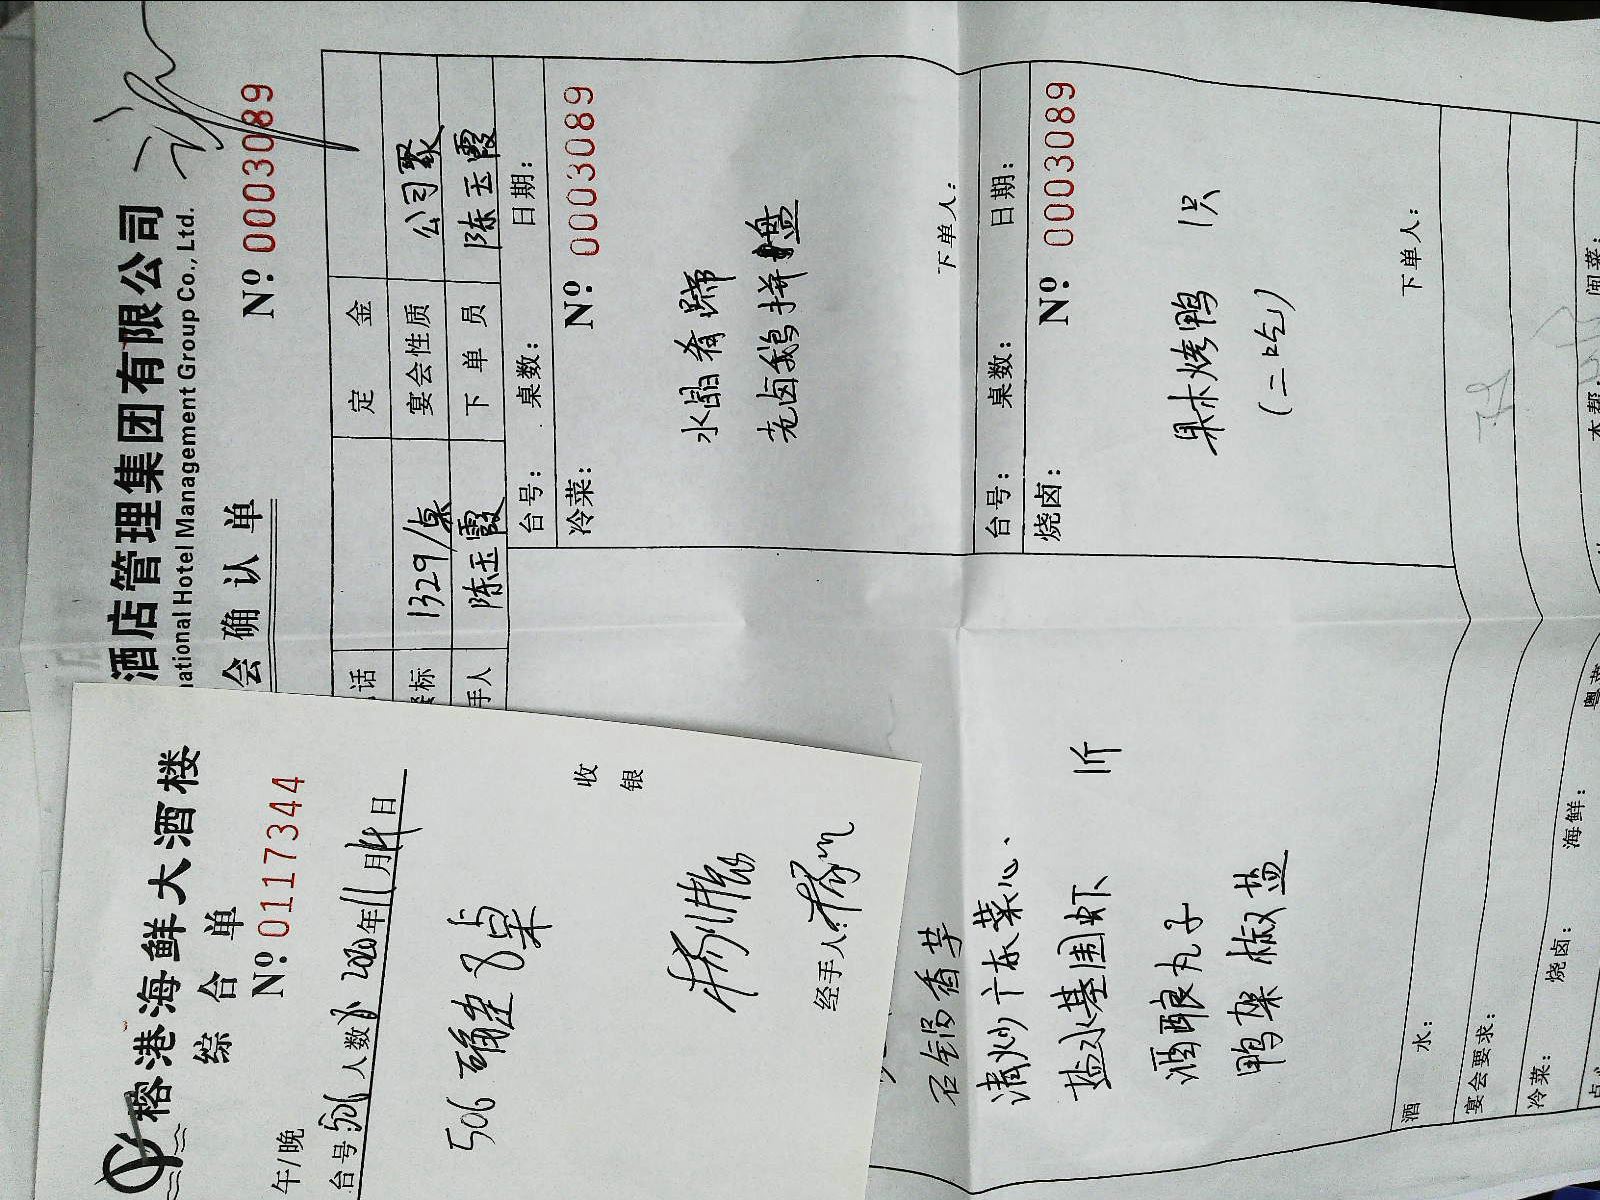 酒店管理集团有限公司
national Hotel Management Group Co., Ltd.
会确认单
Nº: 0003089
话 定金
标 1329/桌 宴会性质 公司聚
手人 陈玉霞 下单员 陈玉霞
台号: 桌数: 日期:
冷菜: Nº: 0003089
水晶肴蹄
老卤鹅拼盘
下单人:
台号: 桌数: 日期:
烧卤: Nº: 0003089
果木烤鸭 1只
(二吃)
下单人:
石锅香芋
清炒广东菜心
盐水基围虾 1斤
酒酿丸子
鸭架椒盐
酒水:
宴会要求:
冷菜: 烧卤: 海鲜: 粤菜 本帮: 闽菜:
榕港海鲜大酒楼
综合单
Nº 0117344
午/晚
台号 506 人数 8 2020年11月 日
506 确建 8桌
经手人:
收银